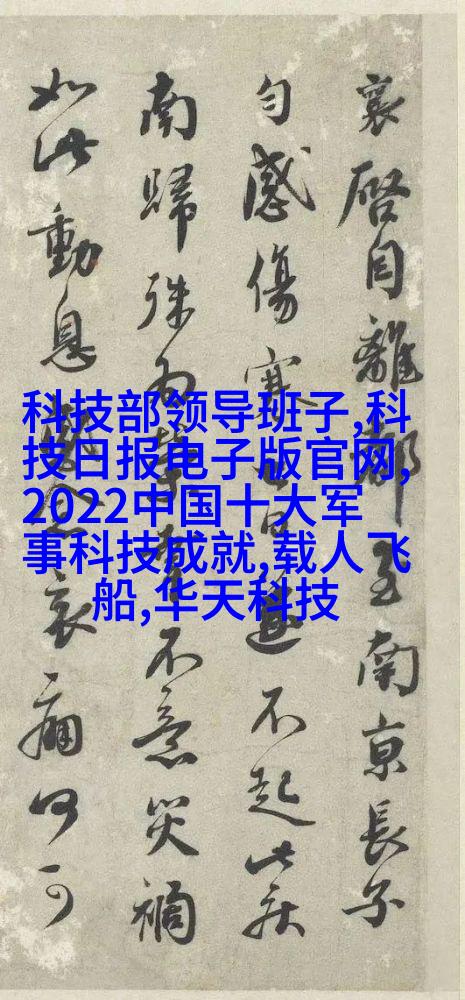 科技部领导班子,科
技日报电子版官网,
2022中国十大军
事科技成就,载人飞
船,华天科技
襄啓自離都至南京長子
匀感傷寒遂不起此疾
南歸殊為不意災禍
如此動息哀痛何可